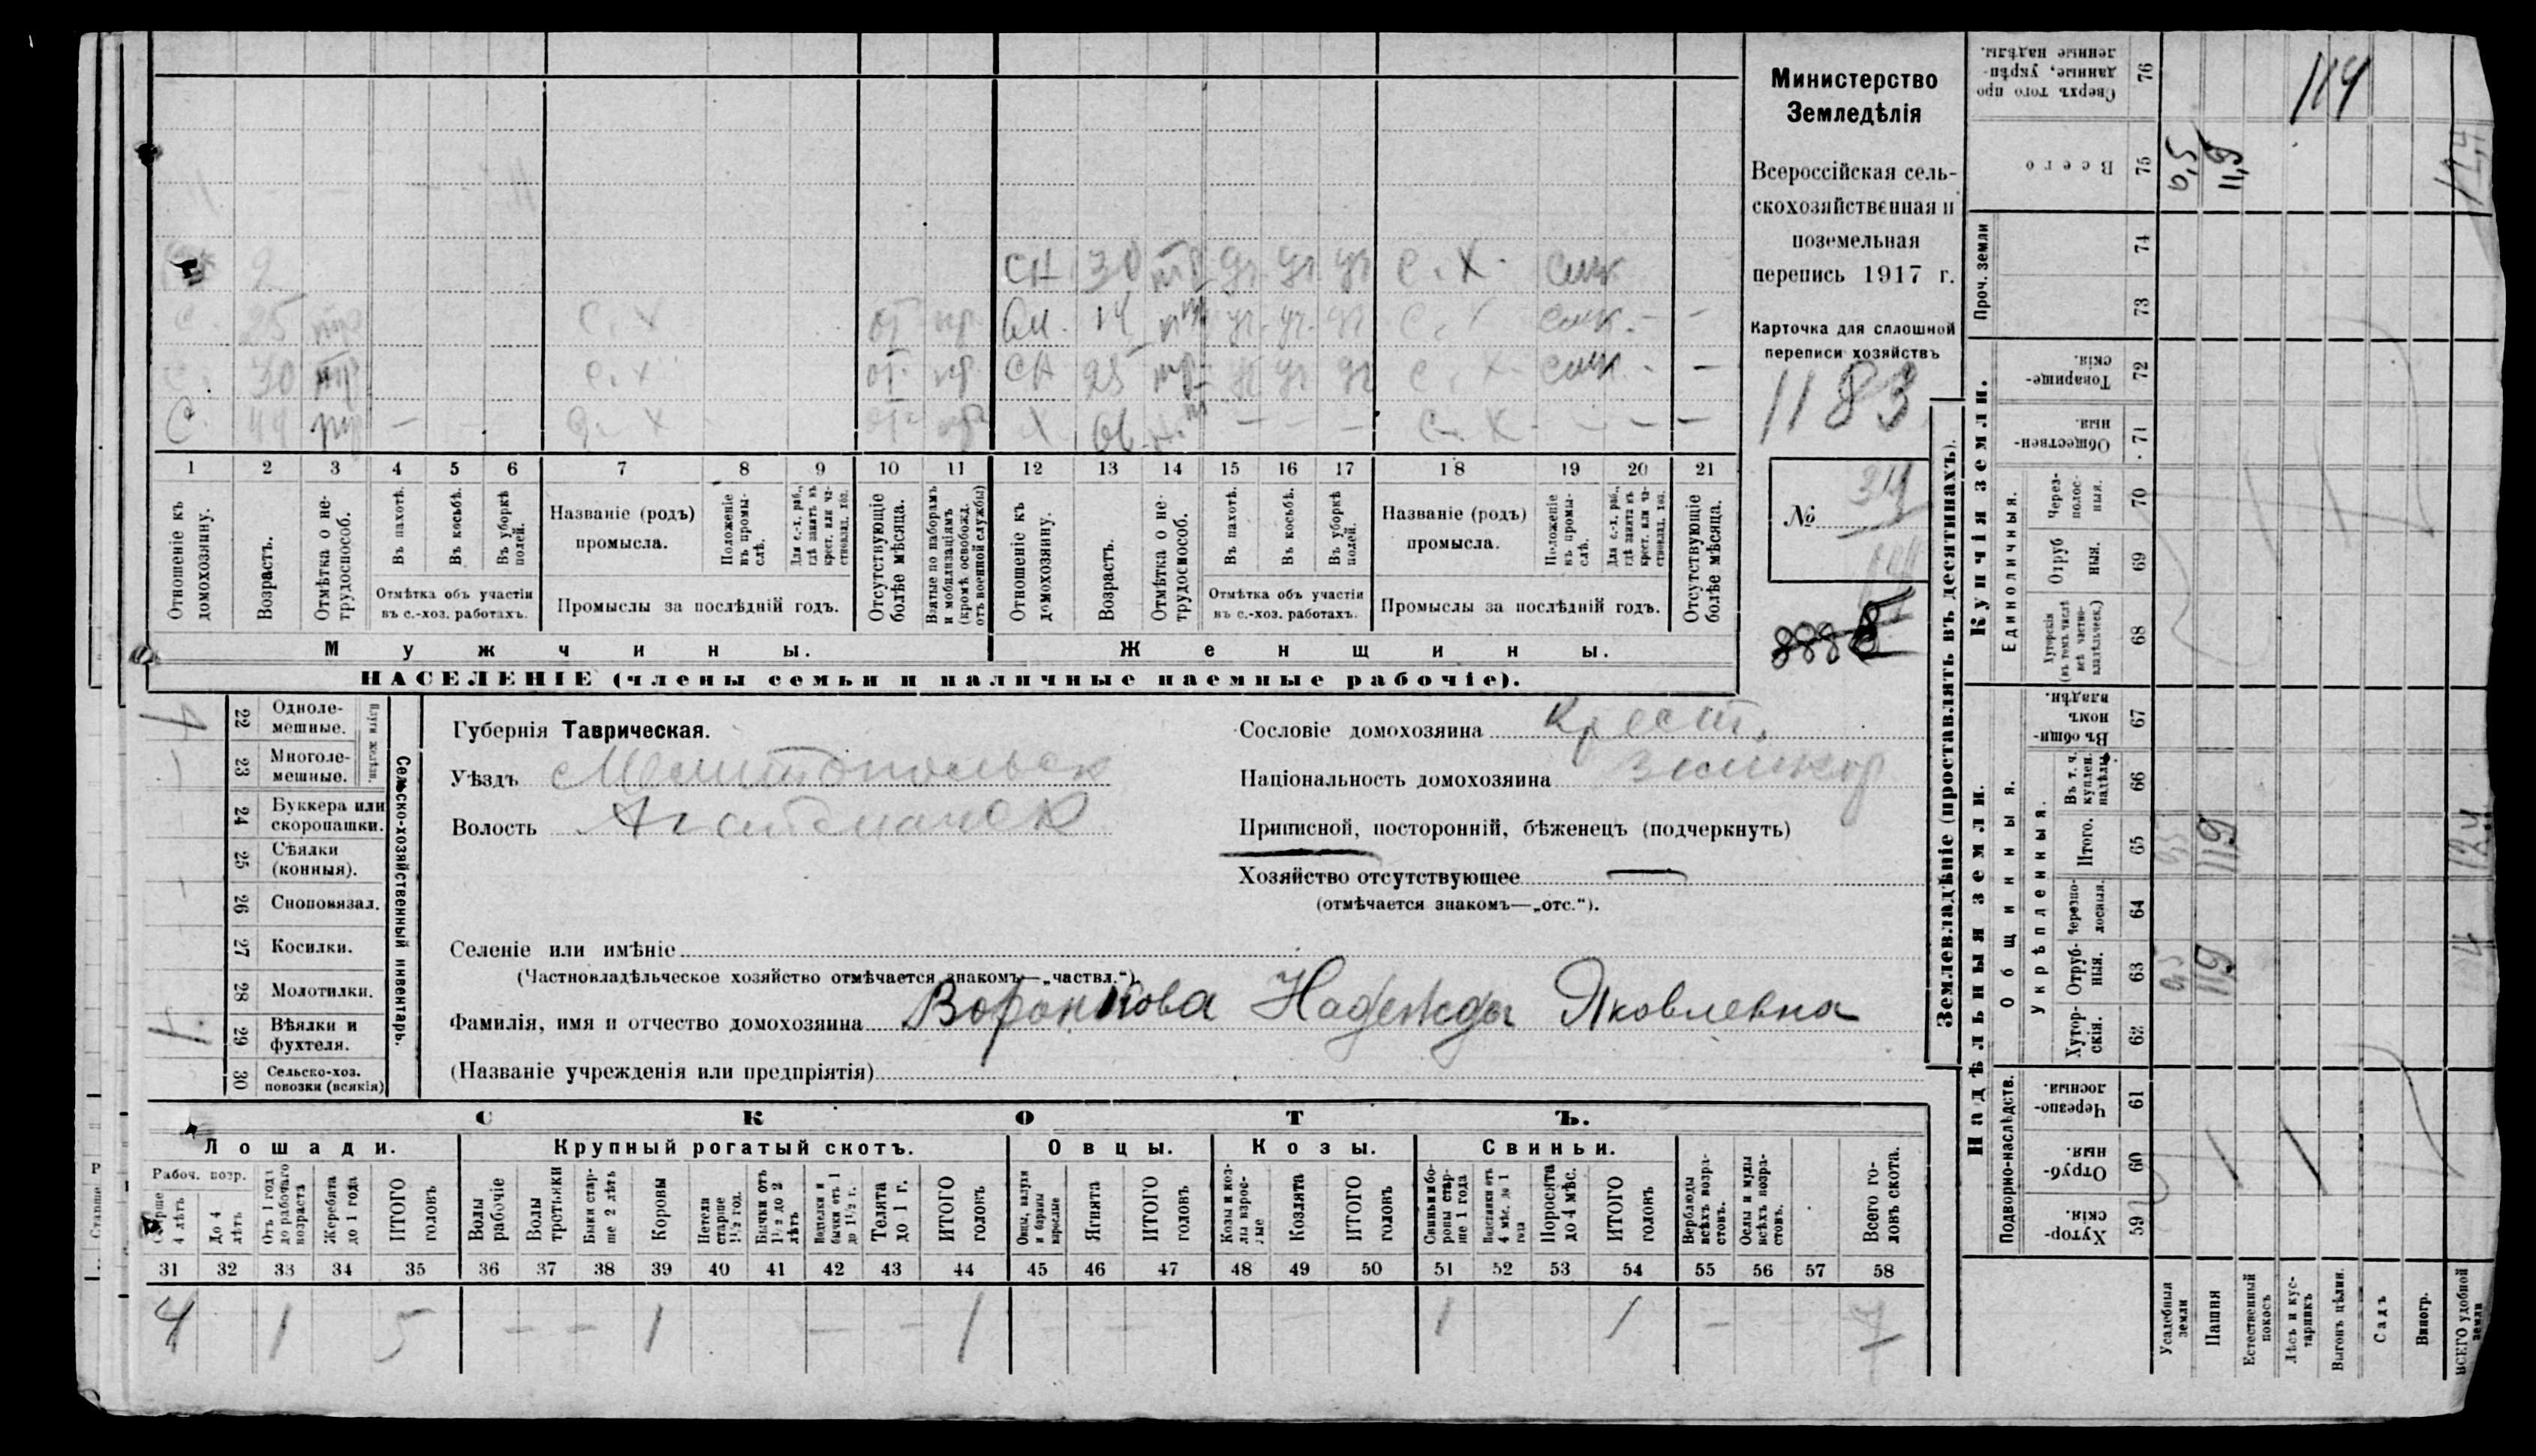 Министерство
Земледѣлія
Всероссійская сель-
скохозяйственная и
поземельная
перепись 1917 г.
Карточка для сплошной
переписи хозяйствъ
1183
№
8888
2
СН 30 тр уч уч уч С. Х.
С. 25 тр С. Х от. пр. 14 уч. уч. уч С. Х
С. 30 тр С. Х от. пр. СН 25 тр уч уч уч С. Х. – –
С. тр – С. Х от. Х – – – С. Х. – – –
1 2 3 4 5 6 7 8 9 10 11 12 13 14 15 16 17 18 19 20 21
Отношеніе къ домохозяину.
Возрастъ.
Отмѣтка о не-трудоспособ.
Въ пахотѣ.
Въ косьбѣ.
Въ уборкѣ полей.
Отмѣтка объ участіи
въ с.-хоз. работахъ.
Названіе (родъ)
промысла.
Положеніе въ промы-слѣ.
Для с.-х. раб., гдѣ занятъ въ крест. или ча-стновлад. хоз.
Промыслы за послѣдній годъ.
Отсутствующіе болѣе мѣсяца.
Взятые по наборамъ и мобилизаціямъ (кромѣ освобожд. отъ военной службы)
Отношеніе къ домохозяину.
Возрастъ.
Отмѣтка о не-трудоспособ.
Въ пахотѣ.
Въ косьбѣ.
Въ уборкѣ полей.
Отмѣтка объ участіи
въ с.-хоз. работахъ.
Названіе (родъ)
промысла.
Положеніе въ промы-слѣ.
Для с.-х. раб., гдѣ занята въ крест. или ча-стновлад. хоз.
Промыслы за послѣдній годъ.
Отсутствующіе болѣе мѣсяца.
Мужчины. Женщины.
НАСЕЛЕНІЕ (члены семьи и наличные наемные рабочіе).
Сельско-хозяйственный инвентарь.
Плуги желѣзн.
22 Одноле-
мешные.
23 Многоле-
мешные.
24 Буккера или
скоропашки.
25 Сѣялки
(конныя).
26 Сноповязал.
27 Косилки.
28 Молотилки.
29 Вѣялки и
фухтеля.
30 Сельско-хоз.
повозки (всякія)
Губернія Таврическая.
Уѣздъ Мелитопольск
Волость
Сословіе домохозяина Крест.
Національность домохозяина
Приписной, посторонній, бѣженецъ (подчеркнуть)
Хозяйство отсутствующее —
(отмѣчается знакомъ—„отс.“).
Селеніе или имѣніе
(Частновладѣльческое хозяйство отмѣчается знакомъ—„частвл.“).
Фамилія, имя и отчество домохозяина Воронкова Надежды Яковлевна
(Названіе учрежденія или предпріятія)
СКОТЪ.
Лошади. Крупный рогатый скотъ. Овцы. Козы. Свиньи.
Рабоч. возр.
Старше 4 лѣтъ
До 4 лѣтъ
Отъ 1 года до рабочаго возраста
Жеребята до 1 года
ИТОГО головъ
Волы рабочіе
Волы третьяки
Быки стар-ше 2 лѣтъ
Коровы
Нетели старше 1½ год.
Бычки отъ 1½ до 2 лѣтъ
Телята до 1 г.
ИТОГО головъ
Ягнята
ИТОГО головъ
Козы и коз-лы взрос-лые
Козлята
ИТОГО головъ
Свиньи и бо-ровы стар-ше 1 года
Подсвинки отъ 4 мѣс. до 1 года
Поросята до 4 мѣс.
ИТОГО головъ
Верблюды всѣхъ возра-стовъ.
Ослы и мулы всѣхъ возра-стовъ.
Всего го-ловъ скота.
31 32 33 34 35 36 37 38 39 40 41 42 43 44 45 46 47 48 49 50 51 52 53 54 55 56 57 58
4 1 5 – – 1 – – 1 – – 1 1 – – 7
Землевладѣніе (проставлять въ десятинахъ).
Надѣльныя земли. Купчія земли.
Подворно-наслѣдств.
Общинныя.
Укрѣпленныя.
Единоличныя.
Проч. земли
Хутор-скія. 59
Отруб-ныя. 60
Черезпо-лосныя. 61
Хутор-скія. 62
Отруб-ныя. 63
Черезпо-лосныя. 64
Итого. 65
Въ т. ч. куплен. надѣлы 66
Въ общин-номъ владѣн. 67
Хуторскія (въ томъ числѣ всѣ частно-владѣльческ.) 68
Отруб ныя. 69
Через-полос-ныя. 70
Обществен-ныя. 71
Товарище-скія. 72
73
74
Всего 75
Сверхъ того про данные, укрѣп-ленные надѣлы. 76
119
119
114
Усадебныя земли
Пашня
Естественный покосъ
Лѣсъ и кус-тарникъ
Выгонъ цѣлин.
Садъ
Виногр.
ВСЕГО удобной земли